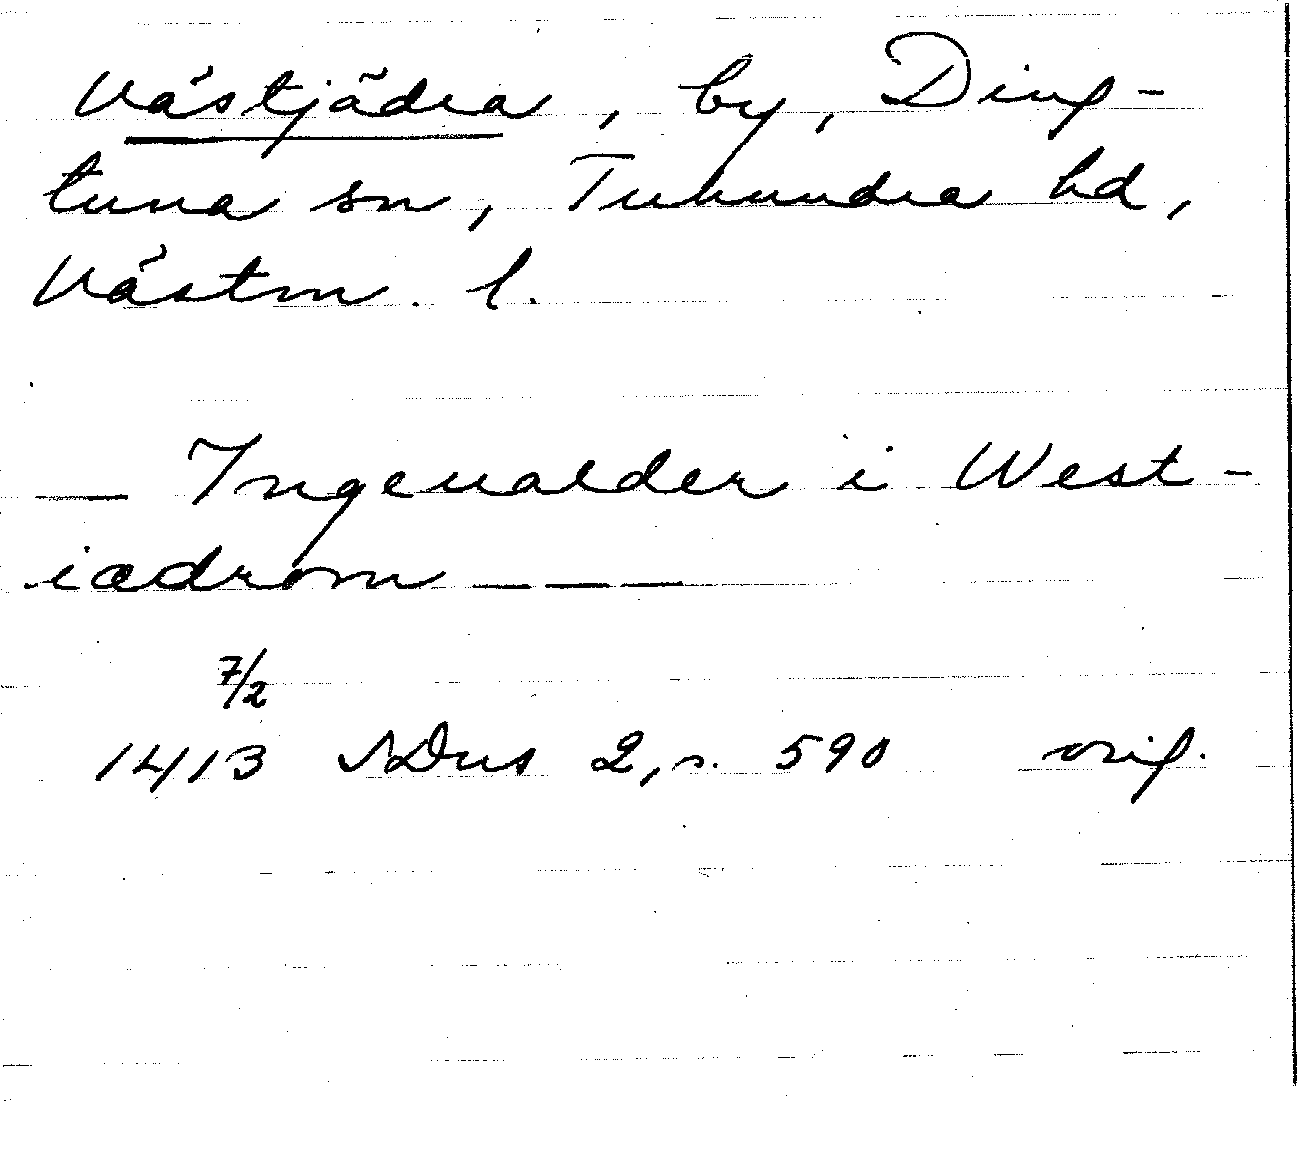 Västjädra, by, Ding-
tuna sn, Tuhundra hd,
Västm. l.
— Ingeualder i West-
iædrom — — —
7/2
1413 SDns 2, s. 590 orig.